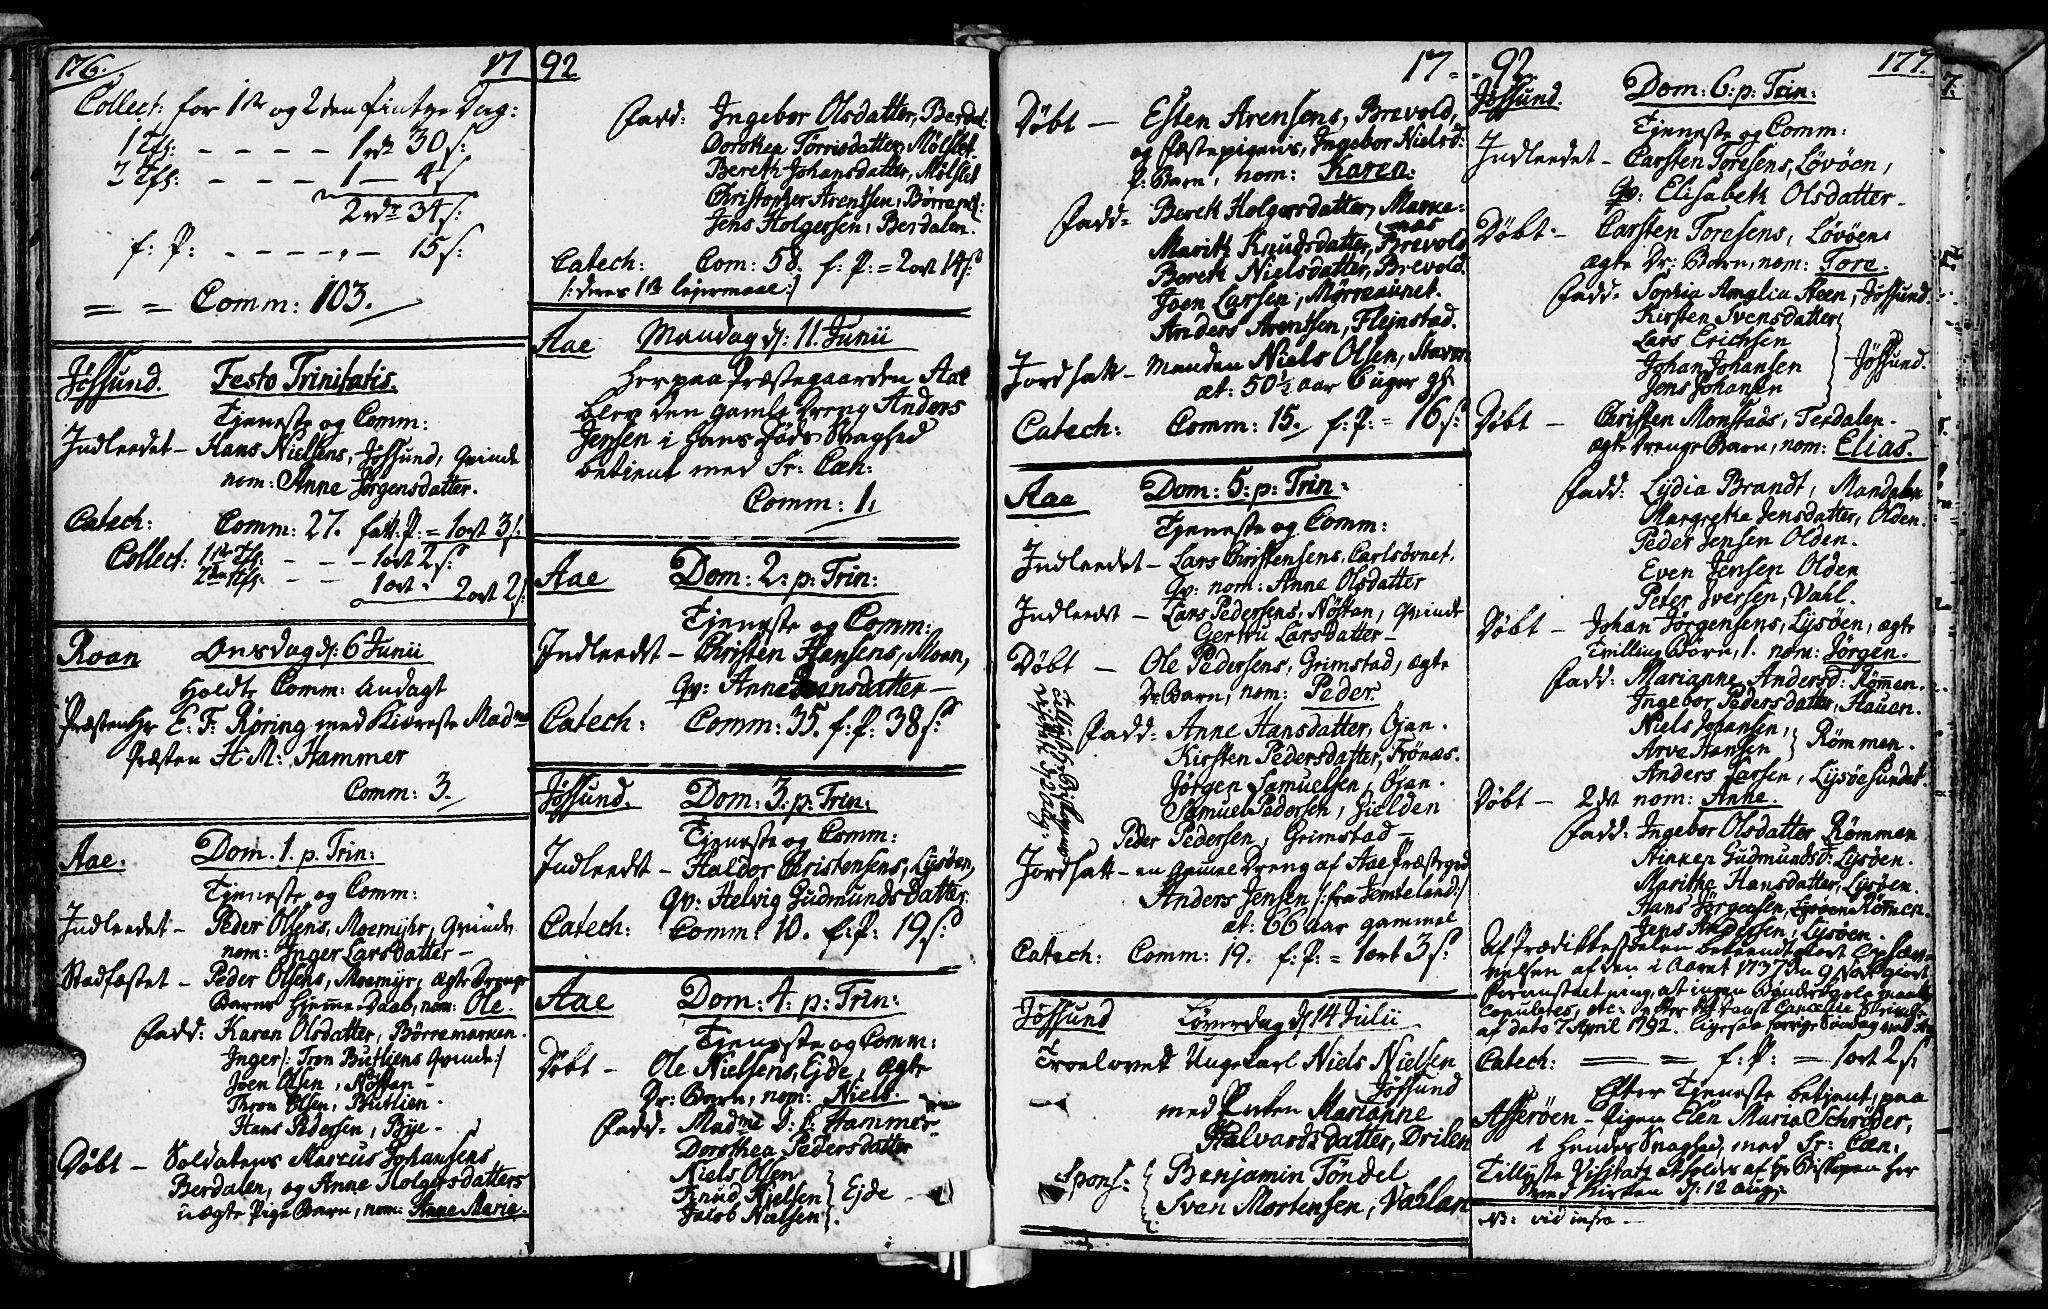 176. 17
Collect: for 1ste og 2den Pintze Dag:
1 Tfs: - - - - 1 rdr 30 s:
2 Tfs: - - - 1 — 4 s
2 rdr 34 s:
f: P: - - - - 15 s:
= = Comm: 103.
Jössund. Festo Trinitatis.
Tjeneste og Comm:
Indleedet - Hans Nielsens, Jössund, Qvinde
nom: Anne Jörgensdatter.
Catech: Comm: 27. fatt: P: = 1 ort 3 s:
Collect: 1ste Tfs: - - - 1 ort 2 s:
2den Tfs: - - 1 ort 2 ort 2 s:
Roan Onsdag d: 6 Junii
Holdt Comm: Andagt
Præsten Hr E. F. Röring med Kiæreste Madme
Præsten H: M: Hammer
Comm: 3.
Aae. Dom. 1. p. Trin:
Tjeneste og Comm:
Indleedet - Peder Olsens, Moemyhr, Qvinde
nom: Inger Larsdatter -
Stadfæstet - Peder Olsens, Moemyr, ægte Drenge
Barns Hjemme Daab, nom: Ole.
Fadd: Karen Olsdatter, Börremarken.
Inger /: Tron Butliens Qvinde :/
Joen Olsen, Nöstan -
Thron Olsen, Butlien.
Hans Pedersen, Bye -
Döbt - Soldatens Marcus Johansens
Berdalen, og Anne Holgersdatters
uægte Pige Barn, nom: Anne Marie.
92
Fadd: Ingebor Olsdatter, Berdal:
Dorothea Tørrisdatter, Mölslet.
Bereth Johansdatter, Mölslet
Christopher Arentsen, Börrand:
Jens Holgersen, Berdalen.
Catech: Com: 58. f: P: = 2 ort 14 s:
/: deres 1ste lejermaal :/
Aae Mandag d: 11. Junii
Her paa Præstegaarden Aae
blev den gamle Dreng Anders
Jensen i hans Döds Svaghed
betient med Sr: Cæn:
Comm: 1.
Aae Dom: 2: p: Trin:
Tjeneste og Comm:
Indleedt - Christen Hansens, Moan,
Qv: Anne Jensdatter -
Catech: Comm: 35. f: P: 38 s:
Jössund. Dom: 3: p: Trin:
Tjeneste og Comm:
Indleedt - Haldor Christensens, Lysöen,
Qv: Helvig Gudmunds Datter.
Catech: Comm: 10. f: P: 19 s:
Aae Dom: 4: p: Trin:
Tjeneste og Comm:
Döbt - Ole Nielsens, Ejde, ægte
Dr: Barn, nom: Niels.
Fadd: Madme D: C: Hammer -
Dorothea Pedersdatter
Niels Olsen
Knud Nielsen } Ejde
Jacob Nielsen
17 -
Döbt - Esten Arensens, Brevold,
og Fæstepigens, Ingebor Nielsd:
P: Barn, nom: Karen.
Fadd: Bereth Holgersdatter, Marke-
næs
Marith Knudsdatter, Brevold
Bereth Nielsdatter, Brevold.
Joen Larsen, Mörreaunet.
Anders Arentsen, Flejnstad.
Jordsatt - Manden Niels Olsen,
æt: 50½ aar 6 uger gl:
Catech: Comm: 15. f: P: = 16 s:
Aae Dom: 5: p: Trin:
Tjeneste og Comm:
Indleedet - Lars Christensens, Carlsövnet.
Qv: nom: Anne Olsdatter
Indleedt - Lars Pedersens, Nöstan, Qvinde
Gertru Larsdatter -
Döbt - Ole Pedersens, Grimstad, ægte
Dr: Barn, nom: Peder
Fadd: Anne Hansdatter, Öjan.
Kirsten Pedersdatter, Frönæs.
Jörgen Samuelsen, Öjan.
Samuel Pedersen, Gielden
Peder Pedersen, Grimstad -
Jordsatt - en gammel Dreng af Aae Præstegrd
Anders Jensen /: fra Jemteland :/
æt: 66 aar gammel
Catech: Comm: 19. f: P: = 1 ort 3 s:
Jössund Löverdag d: 14 Julii
Troelovet Ungekarl Niels Nielsen
Jössund
med Enken Marianne
Halvardsdatter, Drilen
Spons: { Benjamin Töndel
Sven Mortensen, Vallan
- 92. 177.
Jössund. Dom: 6: p: Trin:
Tjeneste og Comm:
Indleedet - Carsten Toresens, Lövöen,
Qv: Elisabeth Olsdatter -
Döbt - Carsten Toresens, Lövöen
ægte Dr: Barn, nom: Tore.
Fadd: Sophia Amalia Steen, Jössund.
Kirsten Svensdatter
Lars Erichsen
Johan Johansen } Jössund.
Jens Johansen
Döbt - Christen Monstads, Terdalen.
ægte Drenge Barn, nom: Elias.
Fadd: Lydia Brandt, Mandalen
Margrethe Jensdatter, Olden.
Peder Jensen Olden.
Even Jensen Olden
Peter Iversen, Vahl.
Döbt - Johan Jörgensens, Lysöen, ægte
Tvilling Börn, 1. nom: Jörgen.
Fadd: Marianne Andersd: Römmen.
Ingebor Pedersdatter, Hauen.
Niels Johansen,
Arve Hansen } Römmen.
Anders Larsen, Lysöesundet.
Döbt - 2det nom: Anne.
Fadd: Ingebor Olsdatter Römmen
Gudmundsd: Lysöen.
Marithe Hansdatter, Lysöen.
Hans Jörgensen, Römmen.
Jens Andersen, Lysöen.
Af Prædikestolen bekiendtgiort
velsen af den i Aaret 1737 den 9 Nov: giort
Foranstaltning, at ingen
copuleres, etc: efter det Danske Cancellie Skrivelse
af dato 7 April 1792. ligesaa forrige Söndag ved Aae
Catech: = = f: P: = 1 ort 2 s:
Efter Tjeneste betjent, paa
Asseröen - Pigen Elen Maria Schröder,
i hendes Svaghed, med Sr: Cæn:
Tillyste Visitatz at holdes af Hr Biskopen her
ved Kirken d: 12 aug:
NB: vid infra -